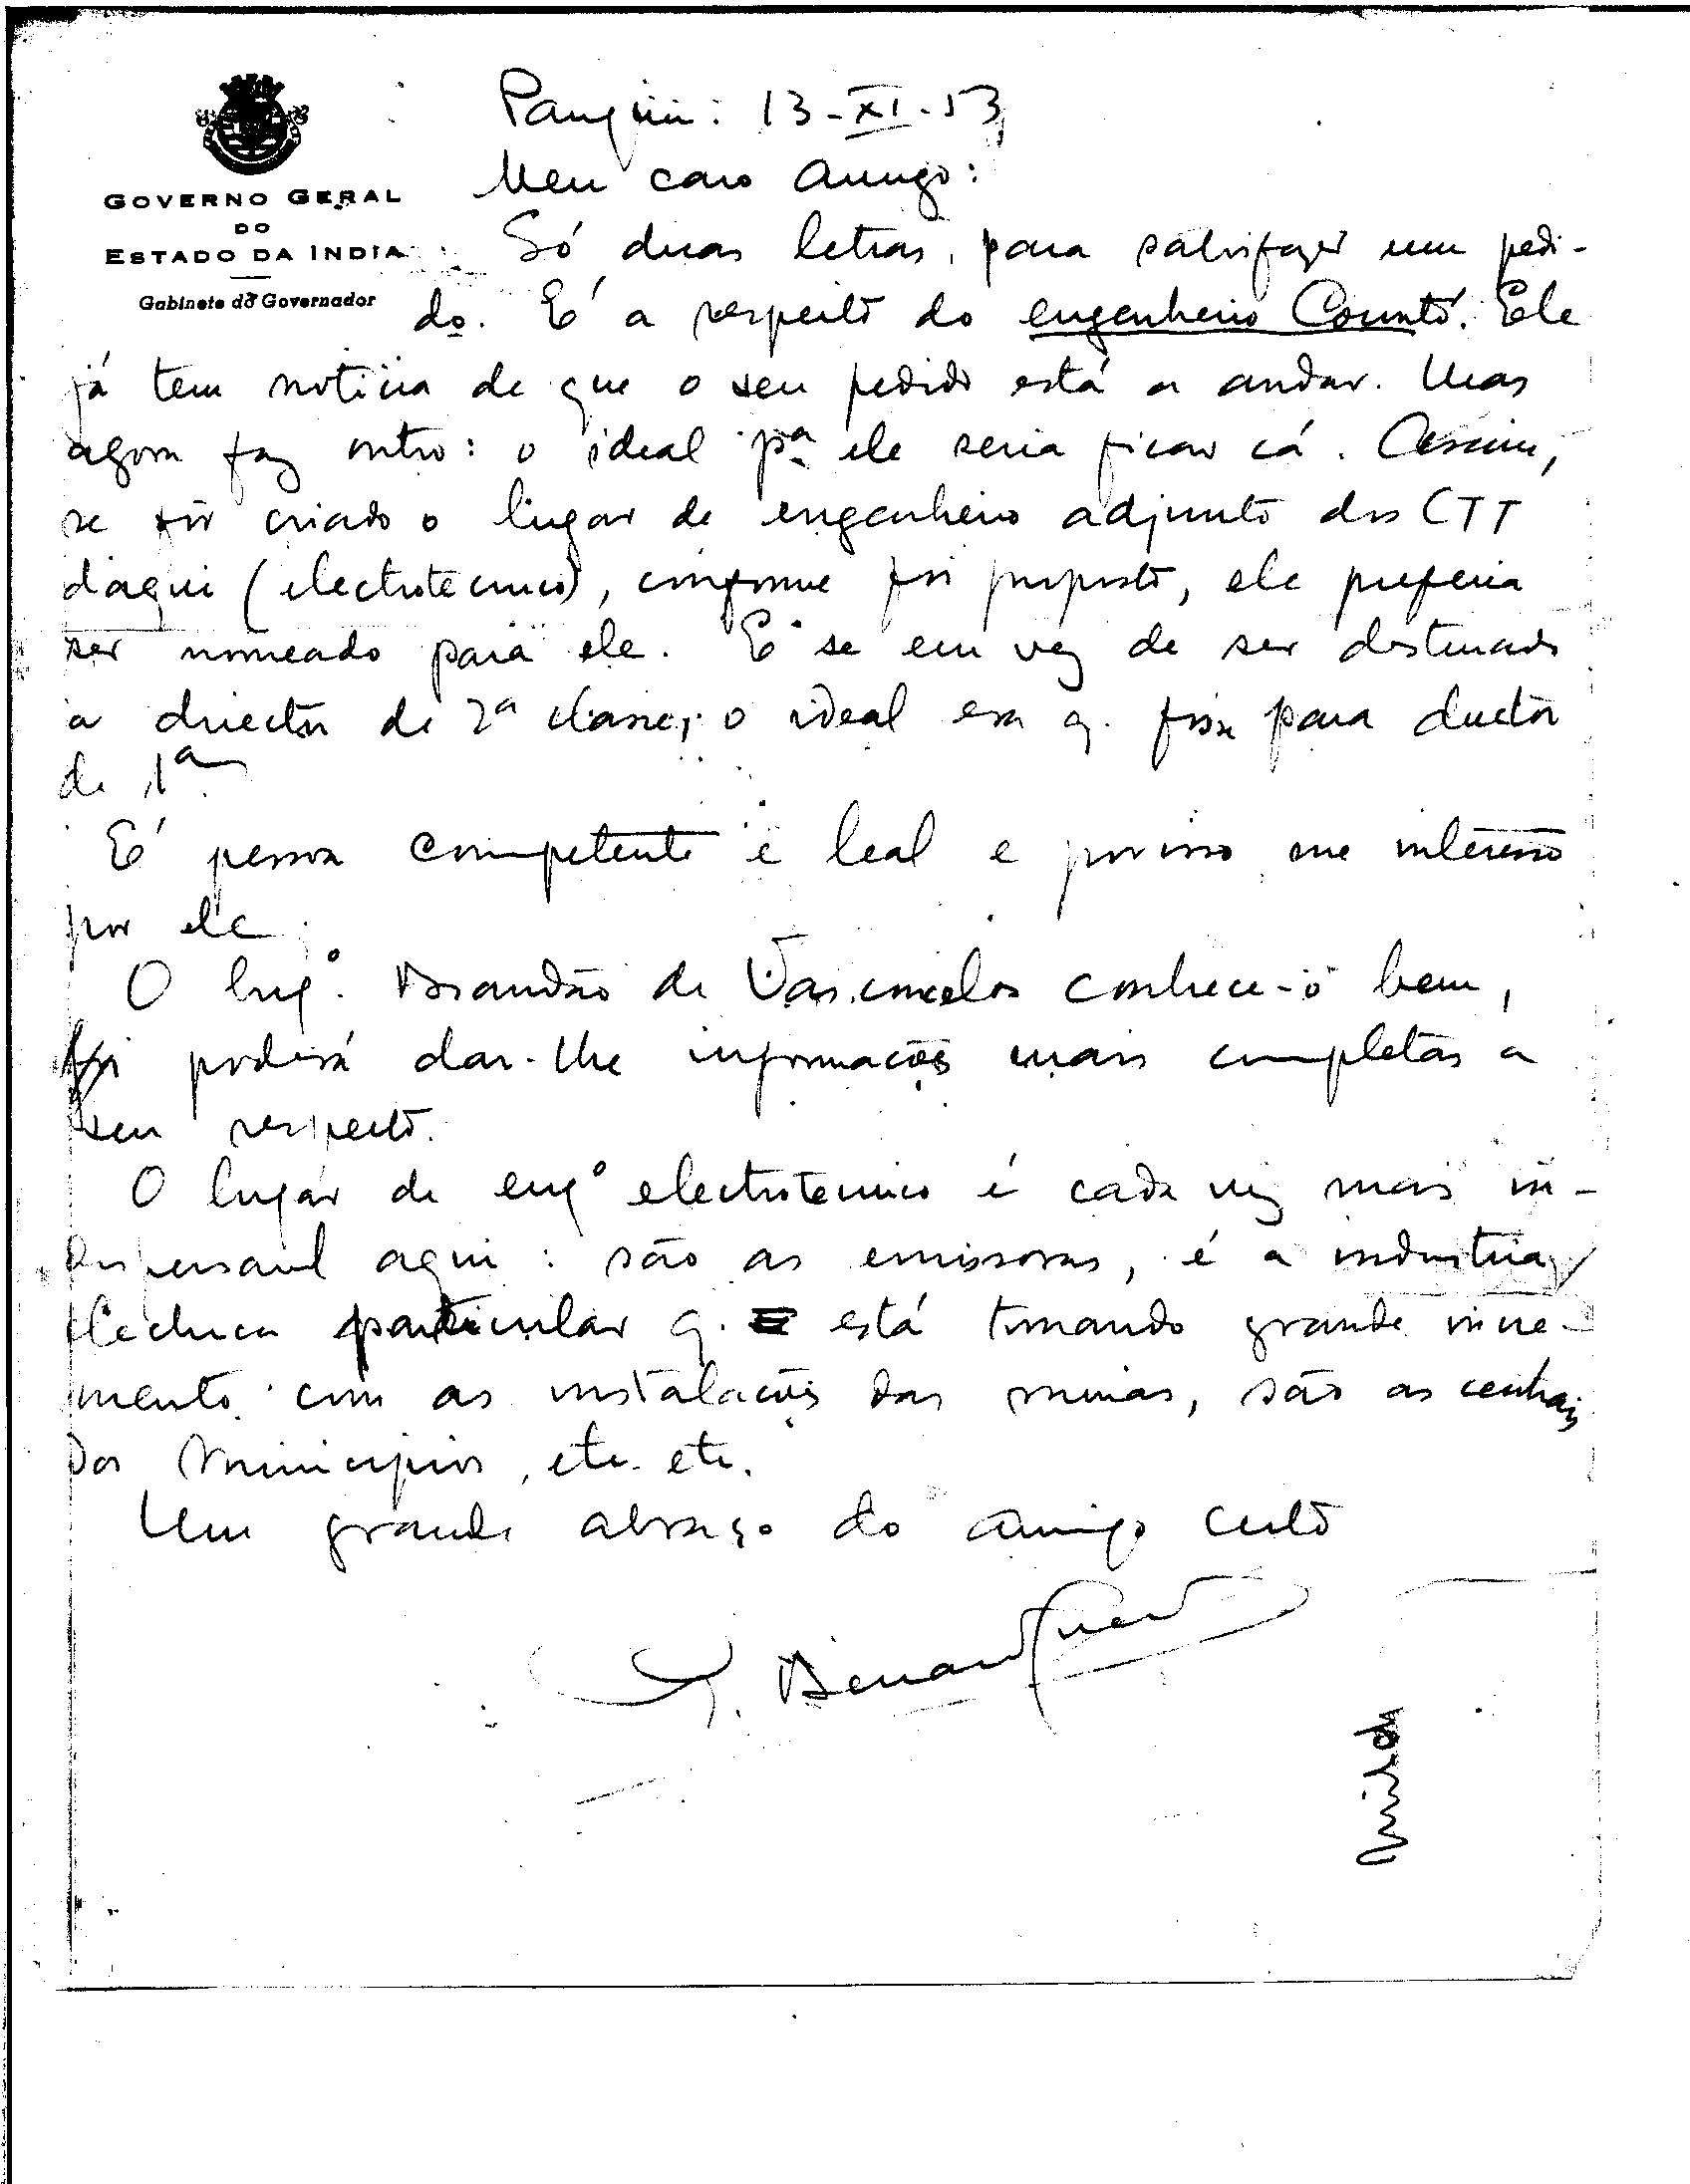 GOVERNO GERAL
DO
ESTADO DA INDIA
Gabinete do Governador
Pangim: 13-XI-53
Meu caro Amigo:
Só duas letras, para satisfazer um pedi-
do. É a respeito do engenheiro Counto. Ele
já tem noticia de que o seu pedido está a andar. Mas
agora faz outro: o ideal pª ele seria ficar cá. Assim,
se fôr criado o lugar de engenheiro adjunto dos CTT
daqui (electrotecnico), conforme foi proposto, ele preferia
ser nomeado para ele. E se em vez de ser destinado
a director de 2ª classe, o ideal era q. fosse para director
de 1ª
É pessoa competente e leal e por isso me interesso
por ele.
O Engº. Brandão de Vasconcelos conhece-o bem,
poderá dar-lhe informações mais completas a
seu respeito.
O lugar de engº electrotecnico é cada vez mais in-
dispensavel aqui: são as emissoras, é a industria
electrica particular q. está tomando grande incre-
mento com as instalações das minas, são as centrais
dos Municipios, etc. etc.
Um grande abraço do amigo certo